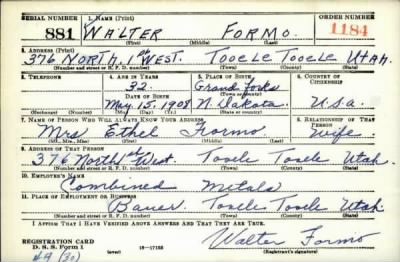 SERIAL NUMBER 1. NAME (Print) ORDER NUMBER
881 WALTER FORMO. 1184
(First) (Middle) (Last)
2. ADDRESS (Print)
376 NORTH. 1st WEST. TOOELE TOOELE UTAH.
(Number and street or R. F. D. number) (Town) (County) (State)
3. TELEPHONE 4. AGE IN YEARS 5. PLACE OF BIRTH 6. COUNTRY OF CITIZENSHIP
32. Grand Forks
DATE OF BIRTH (Town or county)
May. 15. 1908 N. Dakota. U.S.a.
(Exchange) (Number) (Mo.) (Day) (Yr.) (State or country)
7. NAME OF PERSON WHO WILL ALWAYS KNOW YOUR ADDRESS 8. RELATIONSHIP OF THAT PERSON
Mrs Ethel Formo Wife
(Mr., Mrs., Miss) (First) (Middle) (Last)
9. ADDRESS OF THAT PERSON
376 North 1st West. Tooele Tooele Utah.
(Number and street or R. F. D. number) (Town) (County) (State)
10. EMPLOYER'S NAME
Combined Metals
11. PLACE OF EMPLOYMENT OR BUSINESS
Bauer. Tooele Tooele Utah.
(Number and street or R. F. D. number) (Town) (County) (State)
I AFFIRM THAT I HAVE VERIFIED ABOVE ANSWERS AND THAT THEY ARE TRUE.
REGISTRATION CARD
D. S. S. Form 1 (over) 16-17105 Walter Formo
(Registrant's signature)